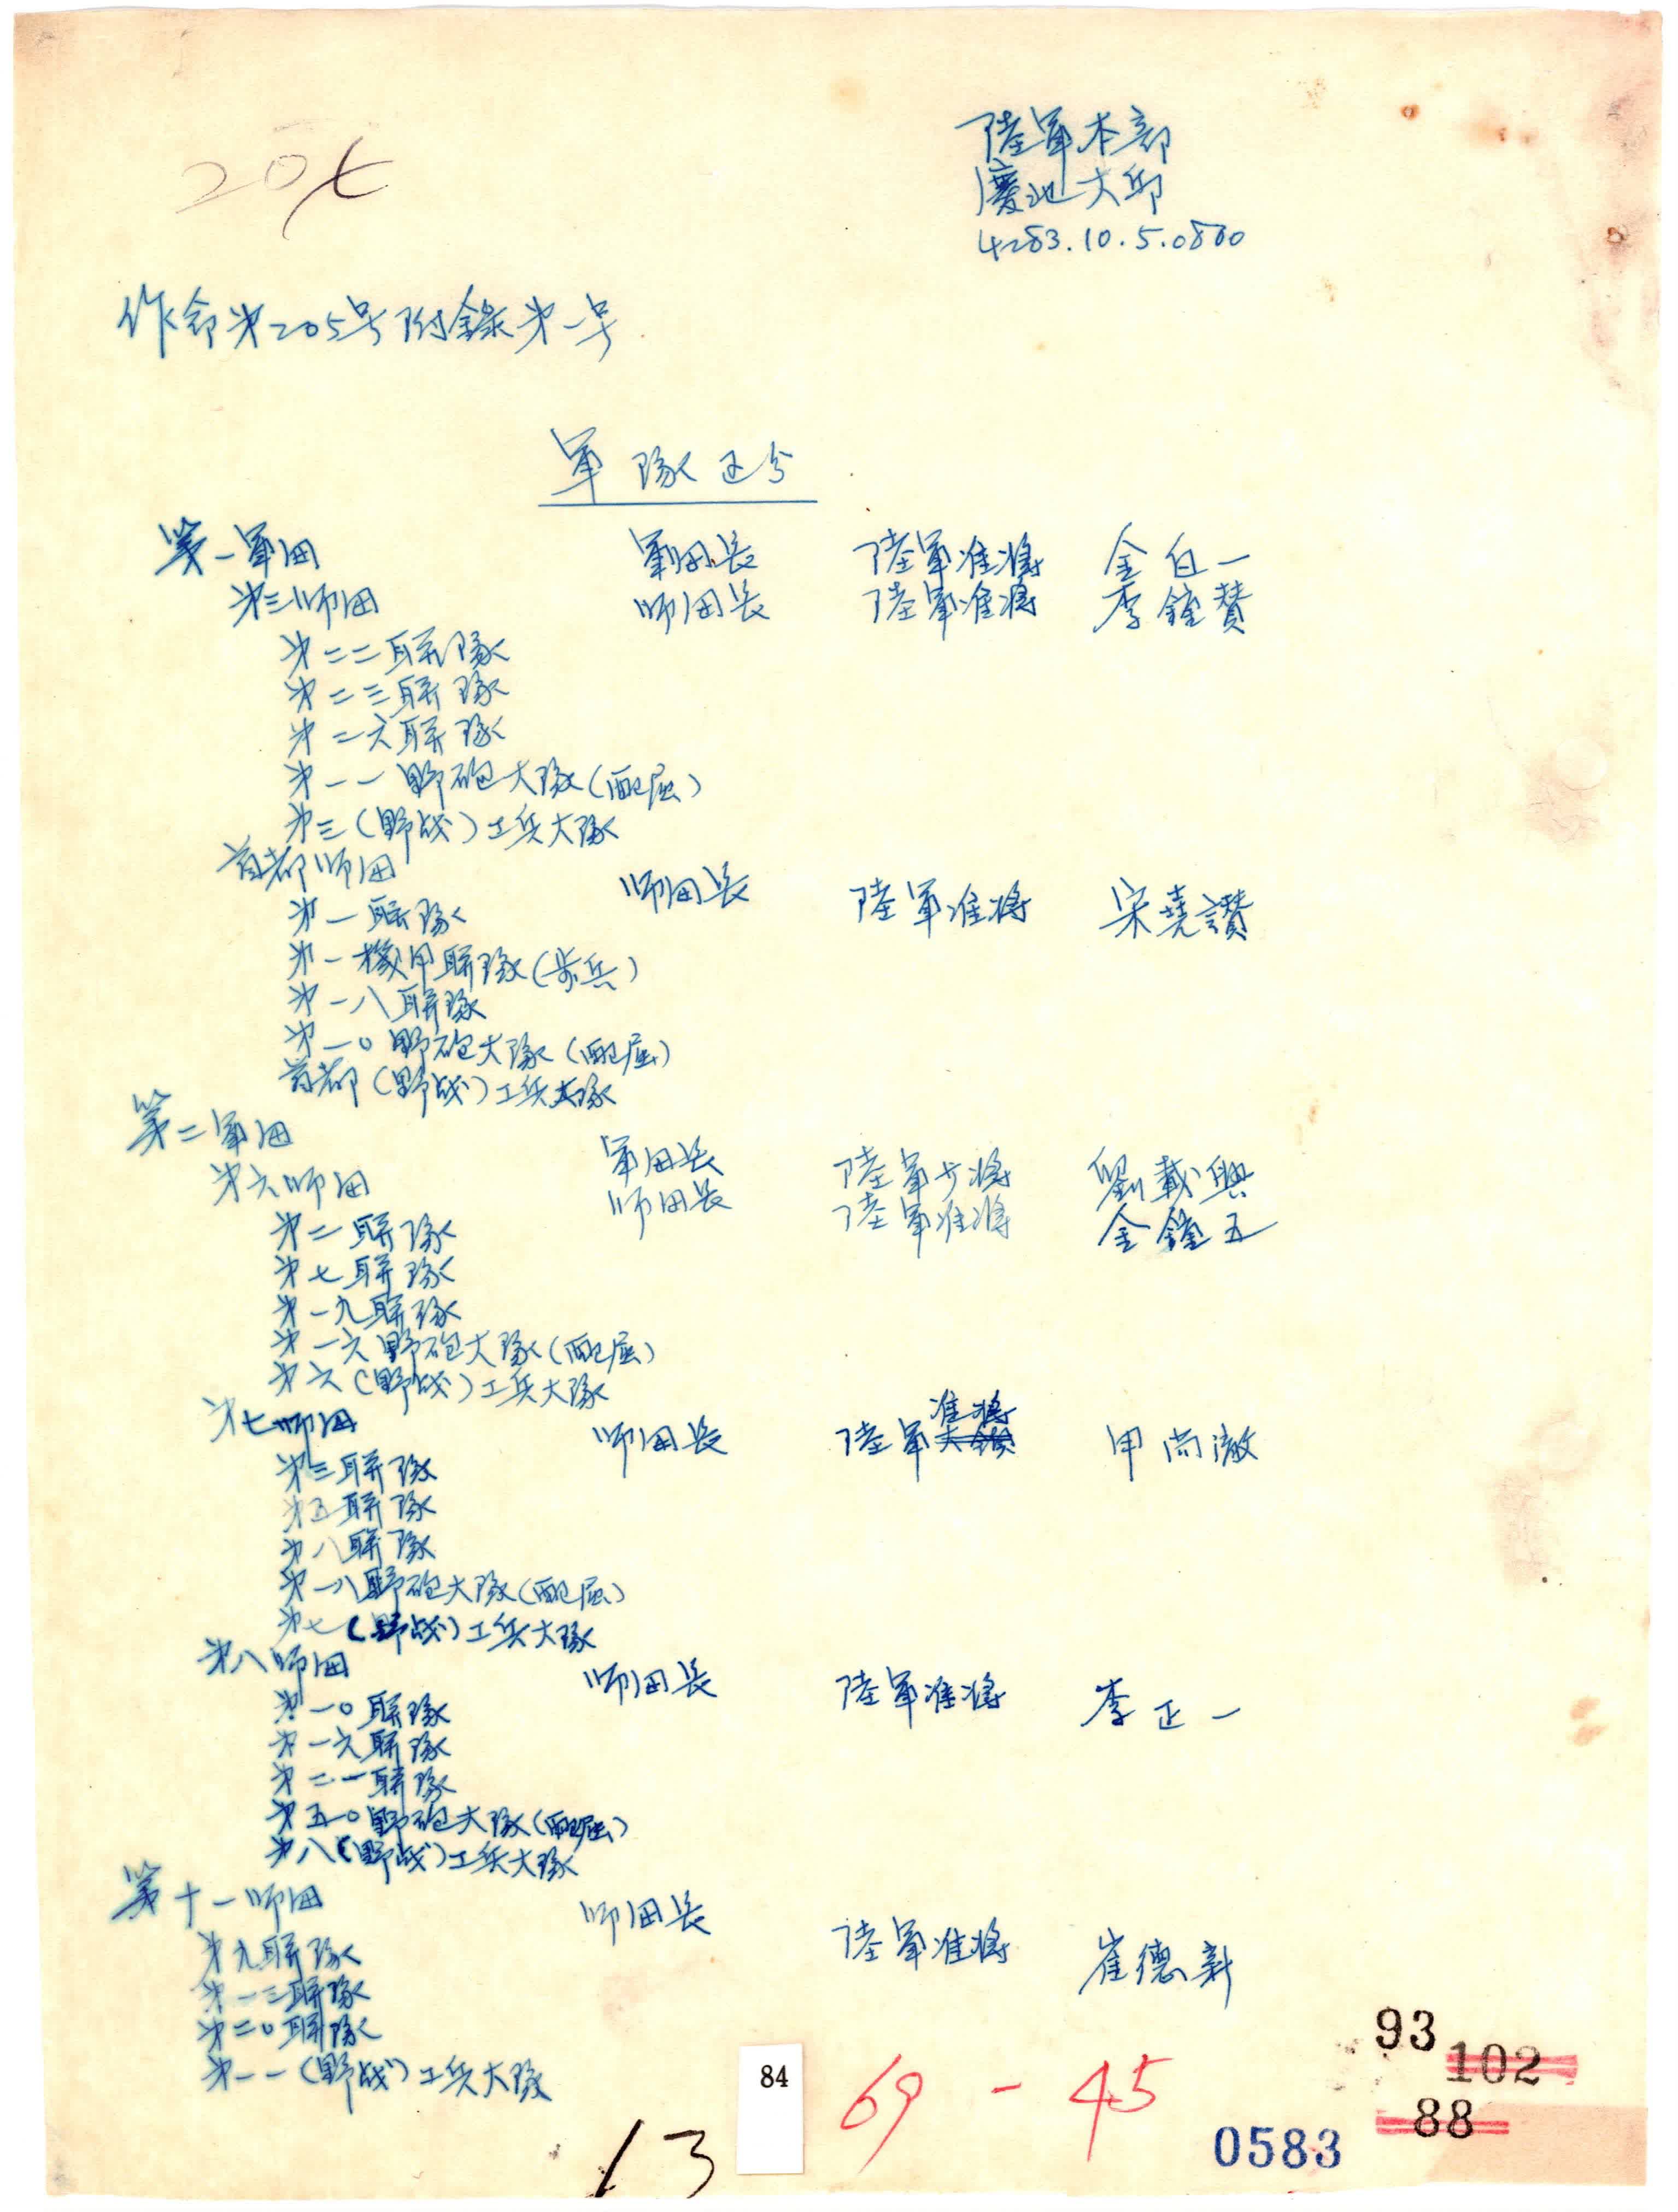 205
陸軍本部
慶北大邱
4283.10.5.0800
作命第205号附錄第一号
軍隊区分
第一軍団 軍団長 陸軍准将 金白一
第三师団 师団長 陸軍准将 李鐘賛
第二二聯隊
第二三聯隊
第二六聯隊
第一一野砲大隊(配属)
第三(野战)工兵大隊
首都师団 师団長 陸軍准将 宋堯讚
第一聯隊
第一機甲聯隊(歩兵)
第一八聯隊
第一〇野砲大隊(配属)
首都(野战)工兵大隊
第二軍団 軍団長 陸軍少将 劉載興
第六师団 师団長 陸軍准将 金鐘五
第二聯隊
第七聯隊
第一九聯隊
第一六野砲大隊(配属)
第六(野战)工兵大隊
第七师団 师団長 陸軍准将 申尚澈
第三聯隊
第五聯隊
第八聯隊
第一八野砲大隊(配属)
第七(野战)工兵大隊
第八师団 师団長 陸軍准将 李正一
第一〇聯隊
第一六聯隊
第二一聯隊
第五〇野砲大隊(配属)
第八(野战)工兵大隊
第十一师団 师団長 陸軍准将 崔德新
第九聯隊
第一三聯隊
第二〇聯隊
第一一(野战)工兵大隊
93
102
84
69-45
88
13
0583